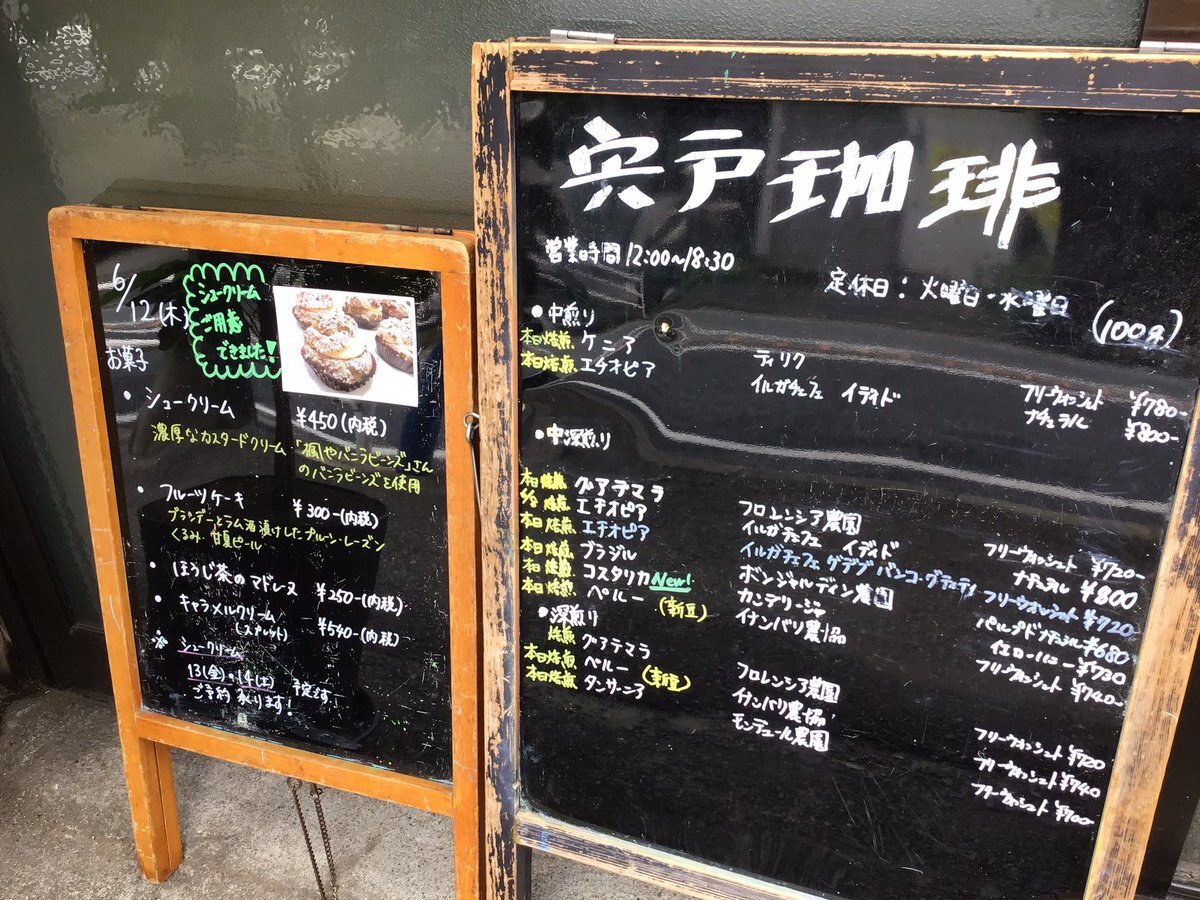 6/12(木)
シュークリーム
ご用意
できました!
お菓子
・シュークリーム ¥450(内税)
濃厚なカスタードクリーム・「楓やバニラビーンズ」さん
のバニラビーンズを使用
・フルーツケーキ ¥300-(内税)
ブランデーとラム酒漬けしたプルーン・レーズン
くるみ・甘夏ピール
・ほうじ茶のマドレーヌ ¥250-(内税)
・キャラメルクリーム ¥540-(内税)
※ シュークリーム
13(金)・14(土) 予定です
ご予約承ります!
宍戸珈琲
営業時間 12:00~18:30
定休日: 火曜日・水曜日
(100g)
●中煎り
本日焙煎 ケニア ティリク フリーウォッシュト ¥780-
本日焙煎 エチオピア イルガチェフェ イディド ナチュラル ¥800-
●中深煎り
本日焙煎 グアテマラ フロレンシア農園 フリーウォッシュト ¥720-
焙煎 エチオピア イルガチェフェ イディド ナチュラル ¥800
本日焙煎 エチオピア イルガチェフェ ゲデブ バンコ・ゴティティ フリーウォッシュト ¥720
本日焙煎 ブラジル ボンジャルディン農園 パルプドナチュラル ¥680
本日焙煎 コスタリカ New! カンデリージャ イエローハニー ¥730
本日焙煎 ペルー (新豆) イナンバリ農協 フリーウォッシュト ¥740-
●深煎り
焙煎 グアテマラ フロレンシア農園 フリーウォッシュト ¥720
本日焙煎 ペルー (新豆) イナンバリ農協 フリーウォッシュト ¥740
本日焙煎 タンザニア モンデュール農園 フリーウォッシュト ¥700-